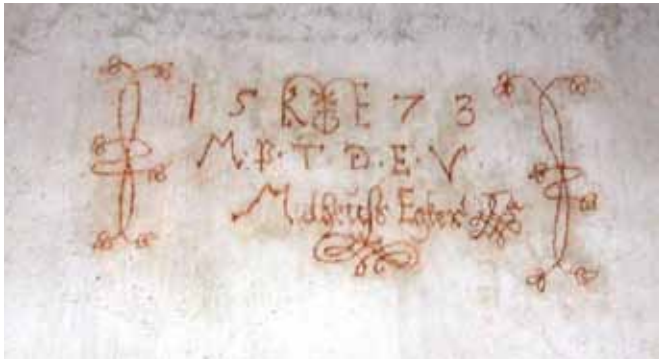 1 5 R E 7 3
M. B. T. D. E. V.
Egber